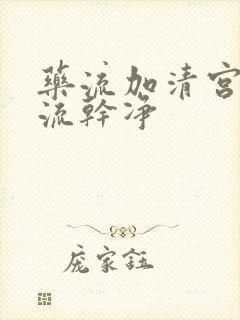 藥流加清宮
流幹凈
庞家鈺